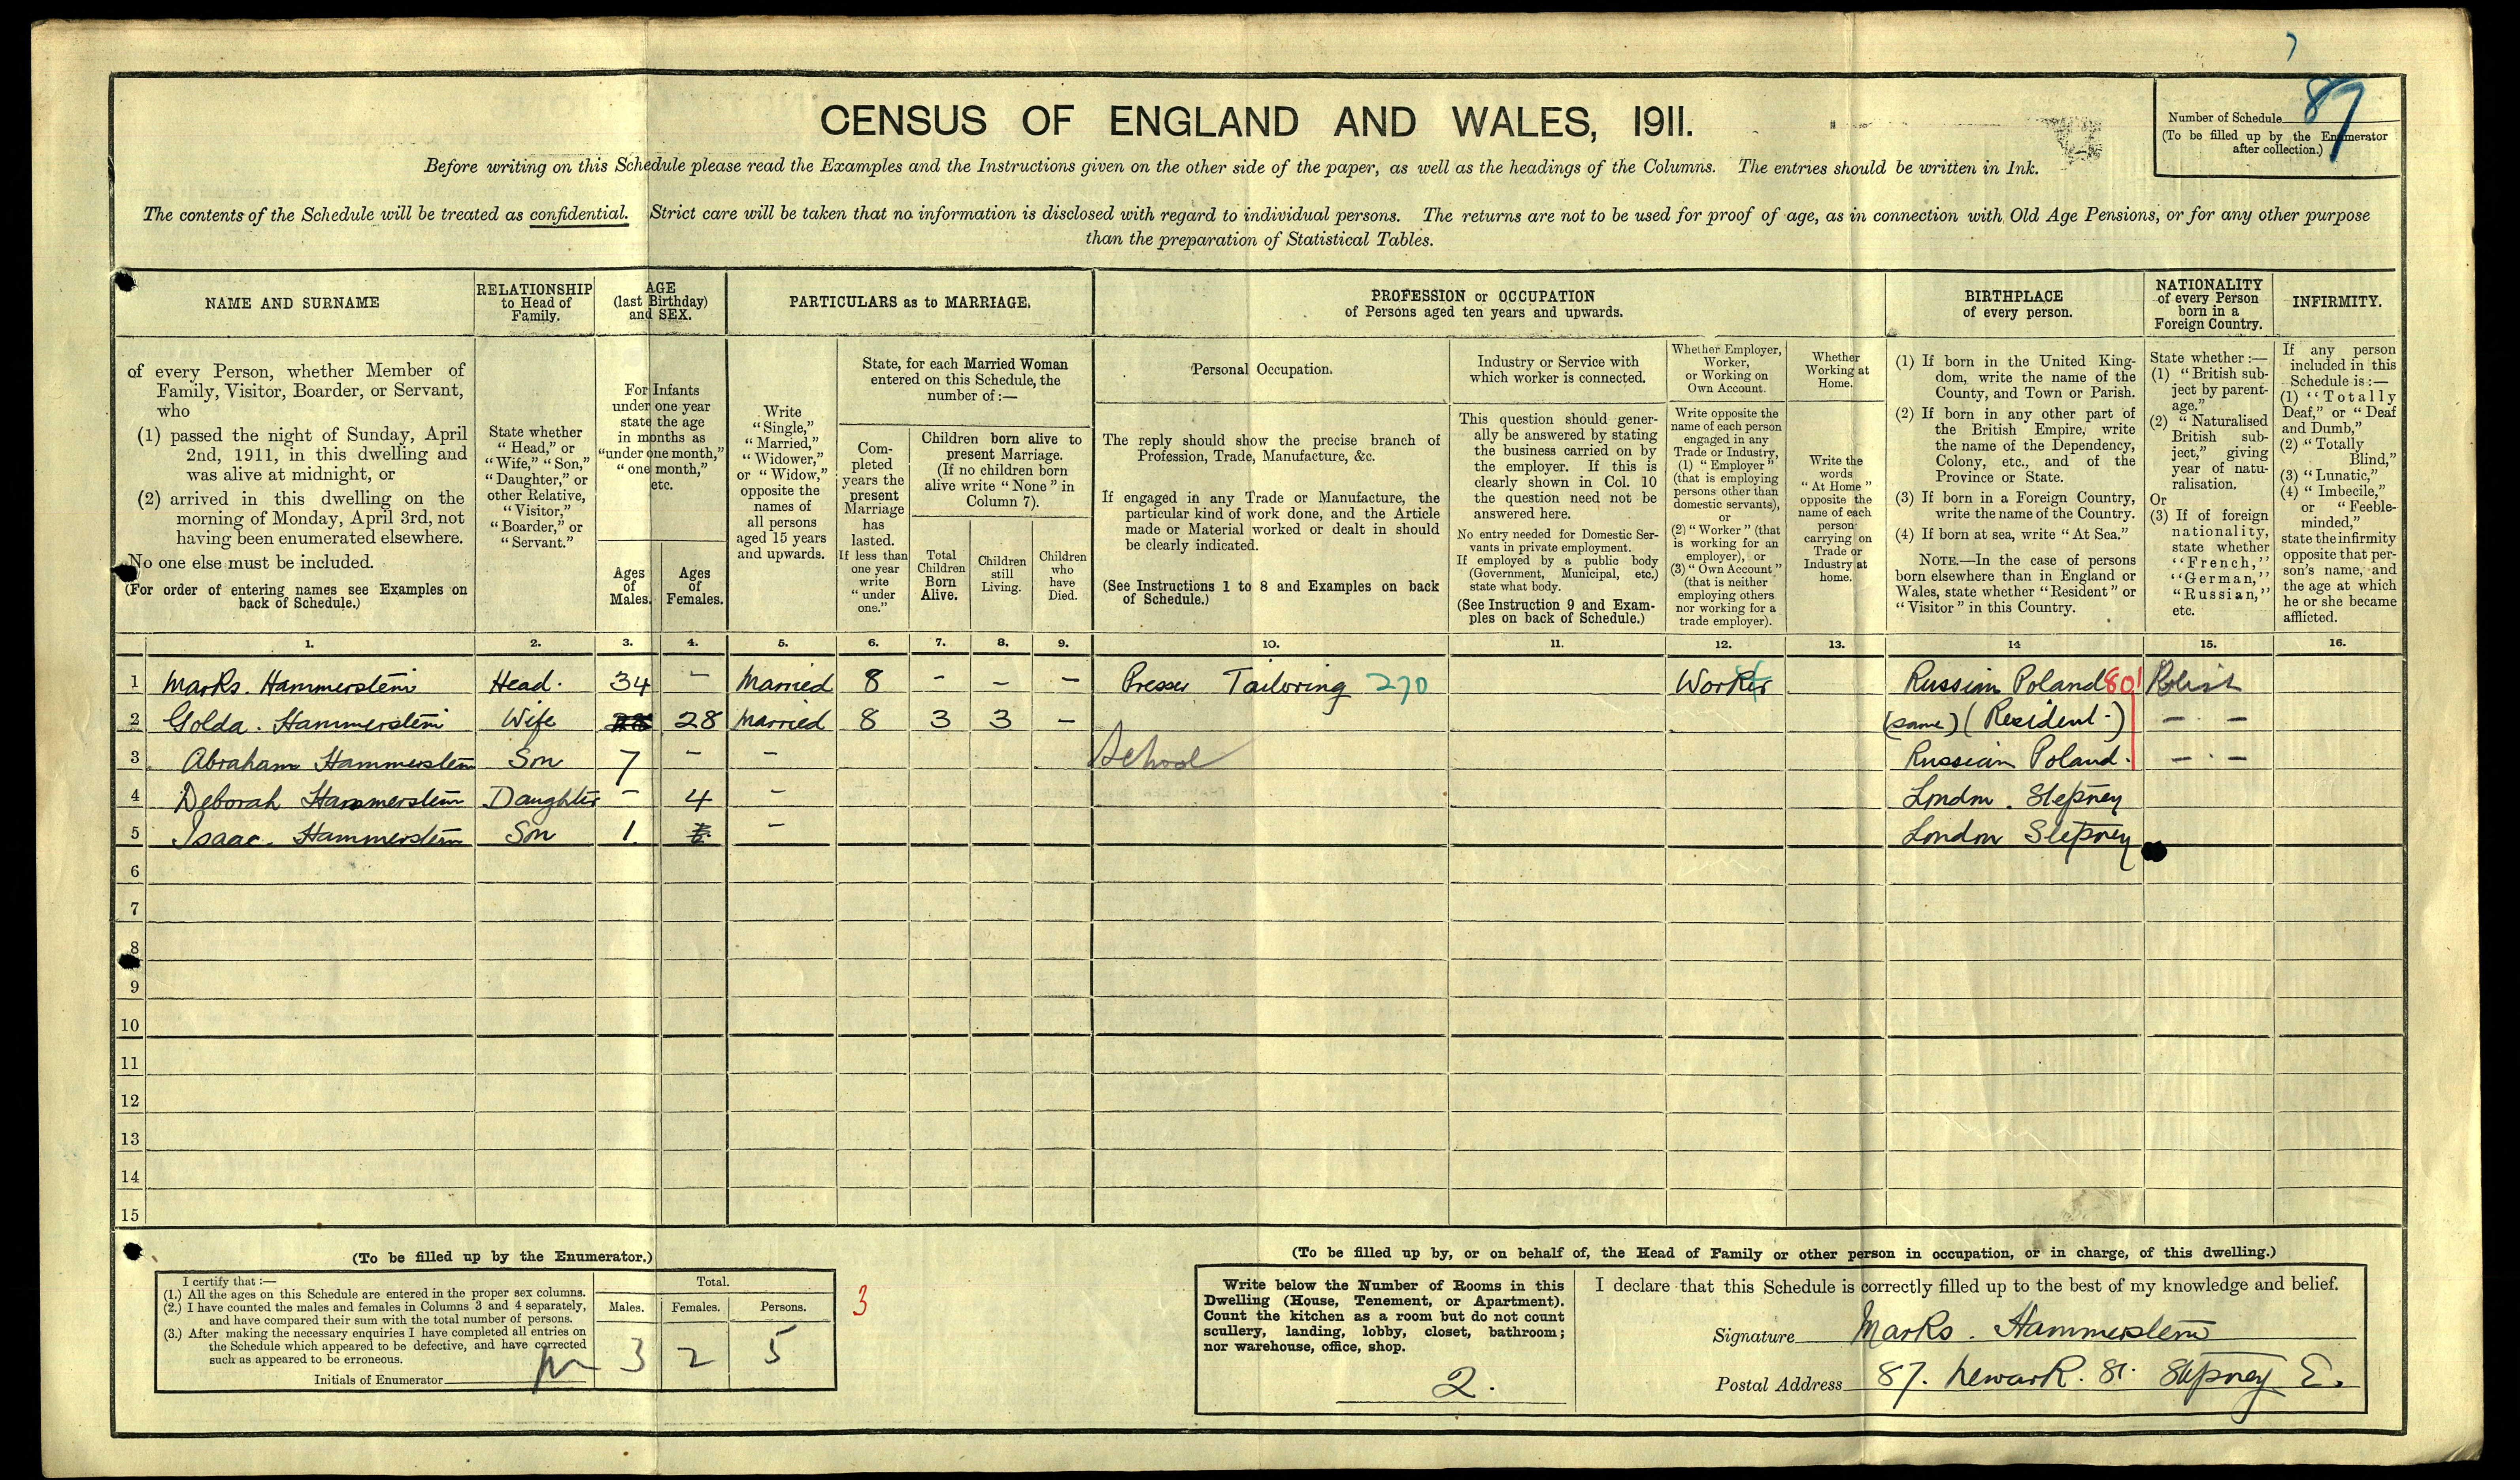 7
CENSUS OF ENGLAND AND WALES, 1911.
Number of Schedule 87
(To be filled up by the Enumerator
after collection.)
Before writing on this Schedule please read the Examples and the Instructions given on the other side of the paper, as well as the headings of the Columns. The entries should be written in Ink.
The contents of the Schedule will be treated as confidential. Strict care will be taken that no information is disclosed with regard to individual persons. The returns are not to be used for proof of age, as in connection with Old Age Pensions, or for any other purpose
than the preparation of Statistical Tables.
NAME AND SURNAME
of every Person, whether Member of
Family, Visitor, Boarder, or Servant,
who
(1) passed the night of Sunday, April
2nd, 1911, in this dwelling and
was alive at midnight, or
(2) arrived in this dwelling on the
morning of Monday, April 3rd, not
having been enumerated elsewhere.
No one else must be included.
(For order of entering names see Examples on
back of Schedule.)
RELATIONSHIP
to Head of
Family.
State whether
"Head," or
"Wife," "Son,"
"Daughter," or
other Relative,
"Visitor,"
"Boarder," or
"Servant."
AGE
(last Birthday)
and SEX.
For Infants
under one year
state the age
in months as
"under one month,"
"one month,"
etc.
Ages
of
Males.
Ages
of
Females.
PARTICULARS as to MARRIAGE.
Write
"Single,"
"Married,"
"Widower,"
or "Widow,"
opposite the
names of
all persons
aged 15 years
and upwards.
State, for each Married Woman
entered on this Schedule, the
number of:—
Com-
pleted
years the
present
Marriage
has
lasted.
If less than
one year
write
"under
one."
Children born alive to
present Marriage.
(If no children born
alive write "None" in
Column 7).
Total
Children
Born
Alive.
Children
still
Living.
Children
who
have
Died.
PROFESSION or OCCUPATION
of Persons aged ten years and upwards.
Personal Occupation.
The reply should show the precise branch of
Profession, Trade, Manufacture, &c.
If engaged in any Trade or Manufacture, the
particular kind of work done, and the Article
made or Material worked or dealt in should
be clearly indicated.
(See Instructions 1 to 8 and Examples on back
of Schedule.)
Industry or Service with
which worker is connected.
This question should gener-
ally be answered by stating
the business carried on by
the employer. If this is
clearly shown in Col. 10
the question need not be
answered here.
No entry needed for Domestic Ser-
vants in private employment.
If employed by a public body
(Government, Municipal, etc.)
state what body.
(See Instruction 9 and Exam-
ples on back of Schedule.)
Whether Employer,
Worker,
or Working on
Own Account.
Write opposite the
name of each person
engaged in any
Trade or Industry,
(1) "Employer"
(that is employing
persons other than
domestic servants),
or
(2) "Worker" (that
is working for an
employer), or
(3) "Own Account"
(that is neither
employing others
nor working for a
trade employer).
Whether
Working at
Home.
Write the
words
"At Home"
opposite the
name of each
person
carrying on
Trade or
Industry at
home.
BIRTHPLACE
of every person.
(1) If born in the United King-
dom, write the name of the
County, and Town or Parish.
(2) If born in any other part of
the British Empire, write
the name of the Dependency,
Colony, etc., and of the
Province or State.
(3) If born in a Foreign Country,
write the name of the Country.
(4) If born at sea, write "At Sea."
NOTE.—In the case of persons
born elsewhere than in England or
Wales, state whether "Resident" or
"Visitor" in this Country.
NATIONALITY
of every Person
born in a
Foreign Country.
State whether:—
(1) "British sub-
ject by parent-
age."
(2) "Naturalised
British sub-
ject," giving
year of natu-
ralisation.
Or
(3) If of foreign
nationality,
state whether
"French,"
"German,"
"Russian,"
etc.
INFIRMITY.
If any person
included in this
Schedule is:—
(1) "Totally
Deaf," or "Deaf
and Dumb,"
(2) "Totally
Blind,"
(3) "Lunatic,"
(4) "Imbecile,"
or "Feeble-
minded,"
state the infirmity
opposite that per-
son's name, and
the age at which
he or she became
afflicted.
1. 2. 3. 4. 5. 6. 7. 8. 9. 10. 11. 12. 13. 14 15. 16.
1 Marks. Hammerstein Head. 34 – Married 8 – – – Presser Tailoring 270 Worker Russian Poland 801 Polish
2 Golda. Hammerstein Wife 28 Married 8 3 3 – (same) (Resident.) – . –
3 Abraham Hammerstein Son 7 – – School Russian Poland. – . –
4 Deborah Hammerstein Daughter – 4 – London. Stepney
5 Isaac. Hammerstein Son 1. – London Stepney
6
7
8
9
10
11
12
13
14
15
(To be filled up by the Enumerator.)
I certify that:—
(1.) All the ages on this Schedule are entered in the proper sex columns.
(2.) I have counted the males and females in Columns 3 and 4 separately,
and have compared their sum with the total number of persons.
(3.) After making the necessary enquiries I have completed all entries on
the Schedule which appeared to be defective, and have corrected
such as appeared to be erroneous.
Initials of Enumerator
Total.
Males. Females. Persons.
3 2 5
3
(To be filled up by, or on behalf of, the Head of Family or other person in occupation, or in charge, of this dwelling.)
Write below the Number of Rooms in this
Dwelling (House, Tenement, or Apartment).
Count the kitchen as a room but do not count
scullery, landing, lobby, closet, bathroom;
nor warehouse, office, shop.
2.
I declare that this Schedule is correctly filled up to the best of my knowledge and belief.
Signature Marks. Hammerstein
Postal Address 87. Newark. St. Stepney E.